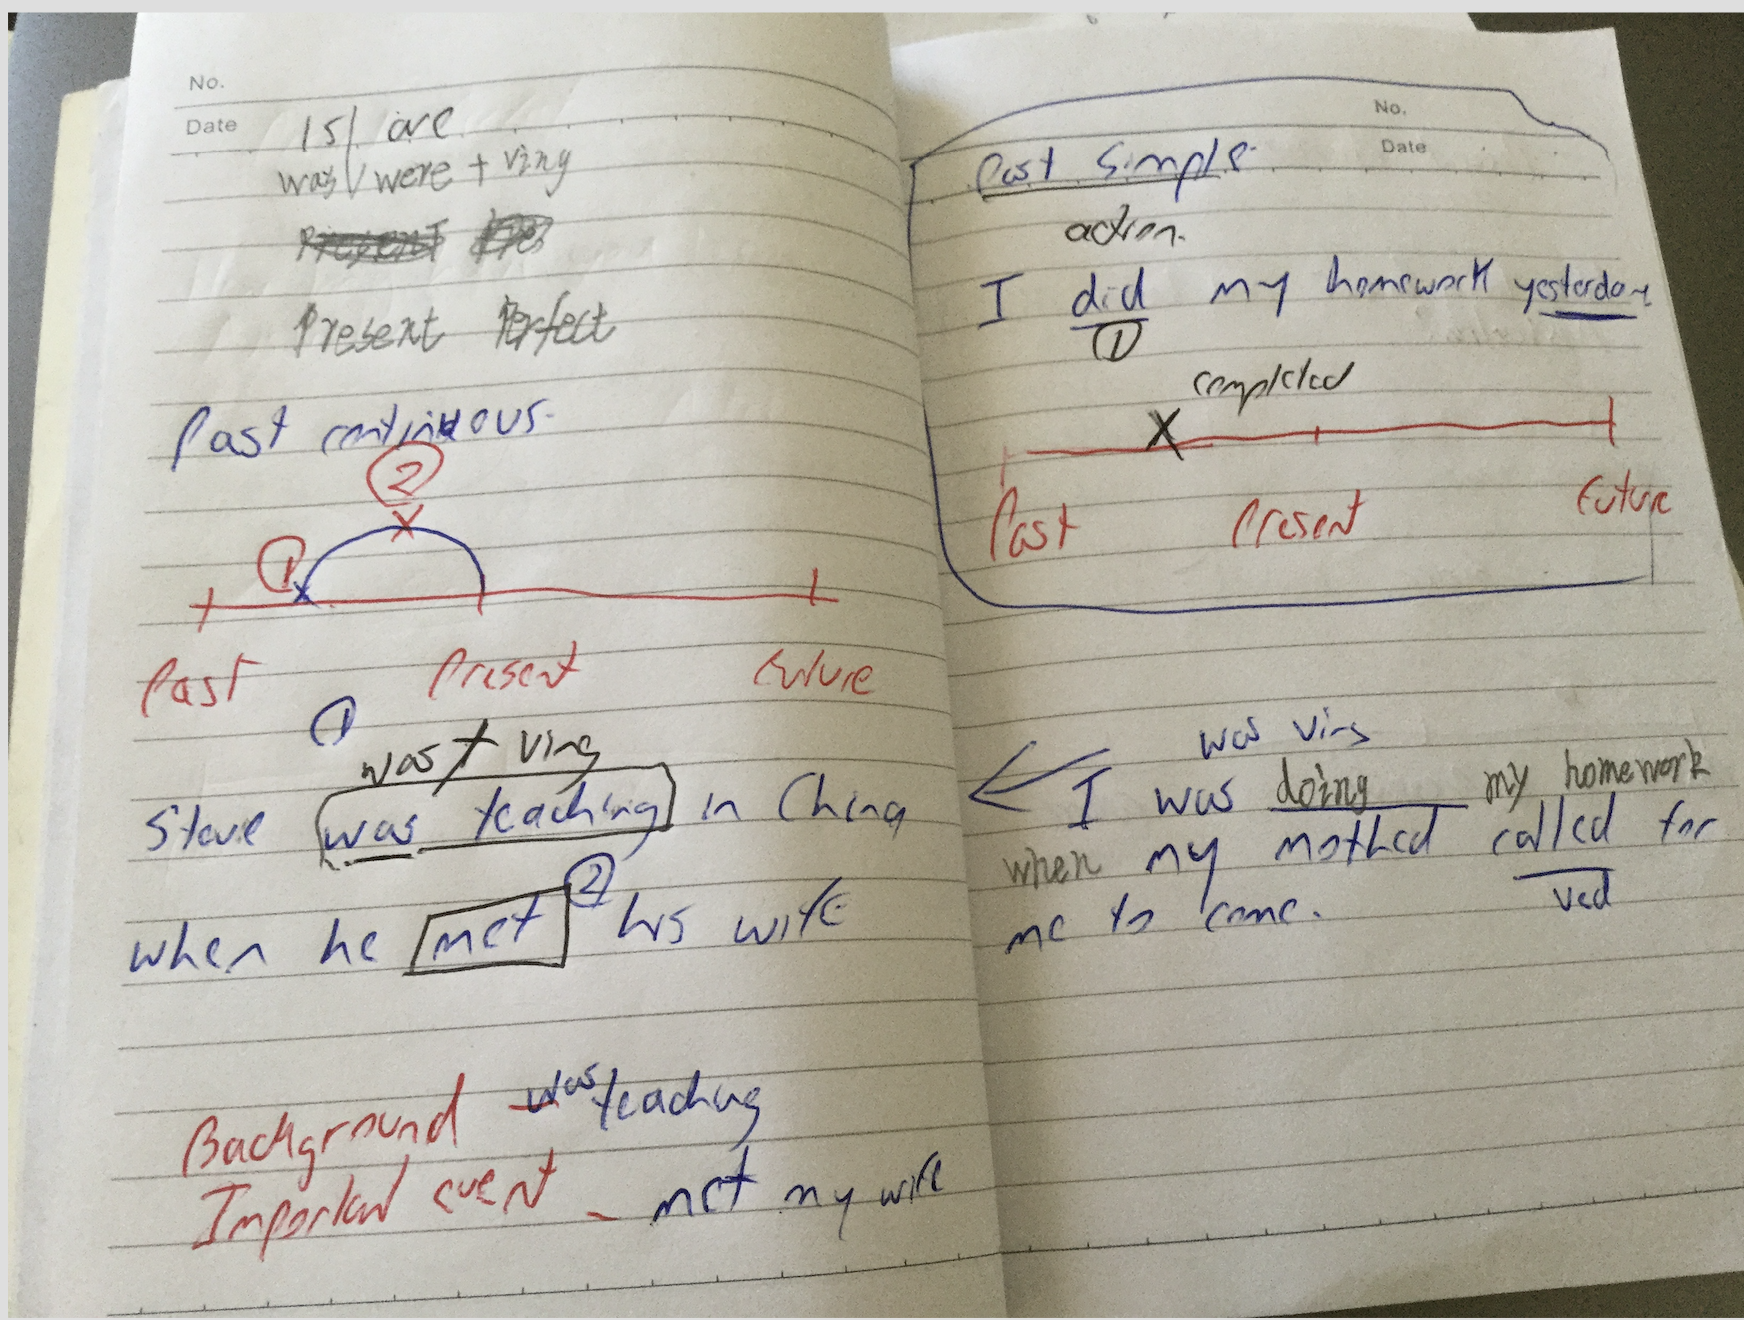 No.
Date
is/are
was/were + ving
Present Perfect
Past continuous.
2
1
Past Present Future
1
was + ving
Steve was teaching in China
2
when he met his wife
Background - was teaching
Important event - met my wife
No.
Date
Past Simple
action.
I did my homework yesterday
1
completed
X
Past Present Future
was ving
I was doing my homework
when my mothed called for
ved
me to come.